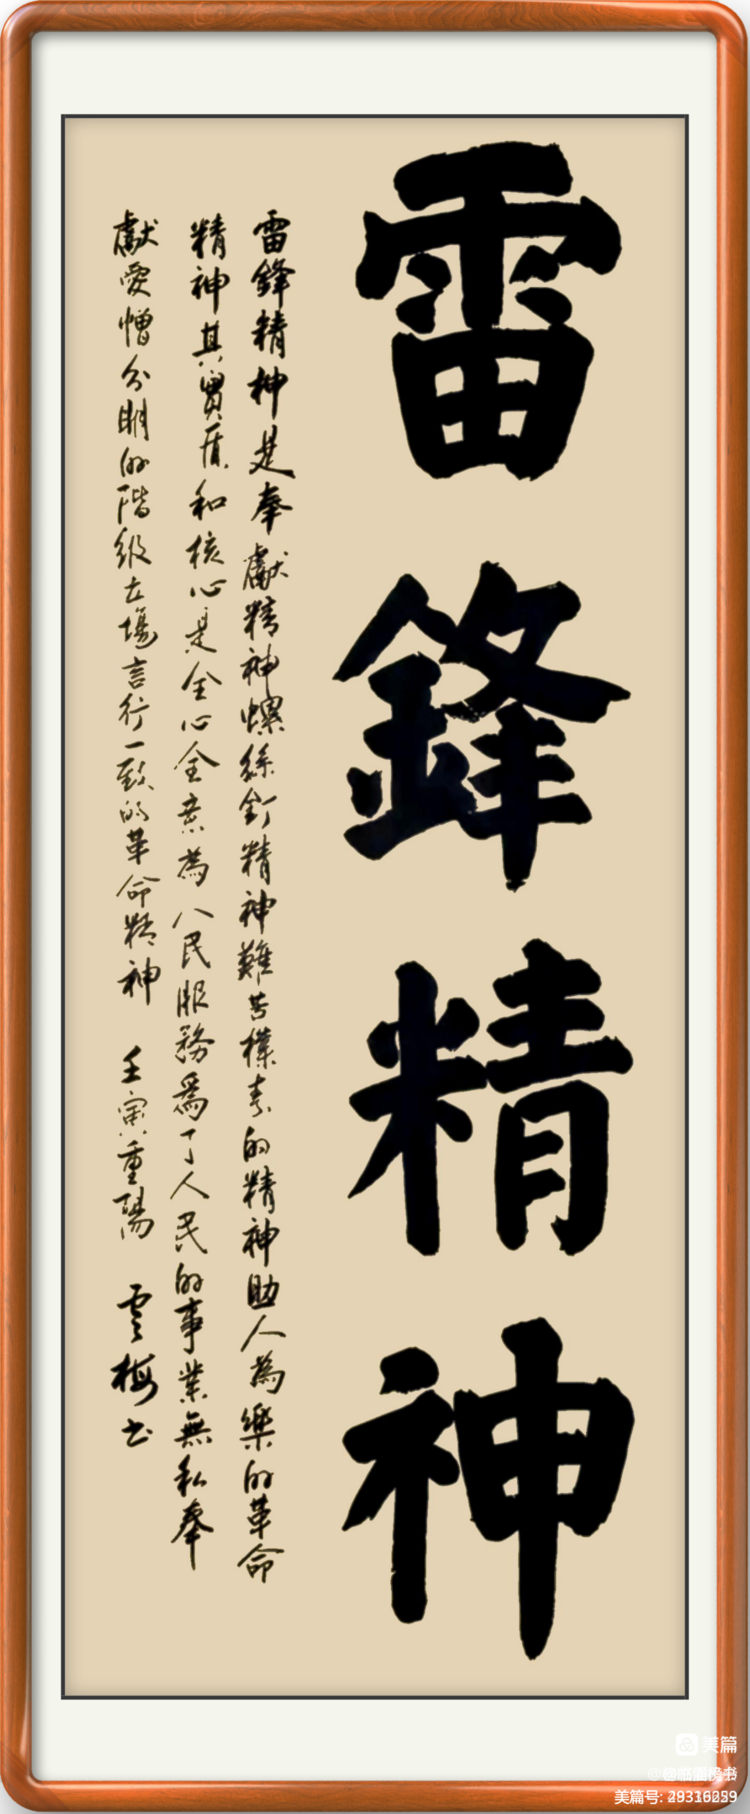 雷鋒精神
雷鋒精神是奉獻精神螺絲釘精神難苦樸素的精神助人為樂的革命
精神其實質和核心是全心全意為人民服務為了人民的事業無私奉
獻愛憎分明的階級立場言行一致的革命精神 壬寅重陽 雲梅书
美篇
美篇号: 29316259